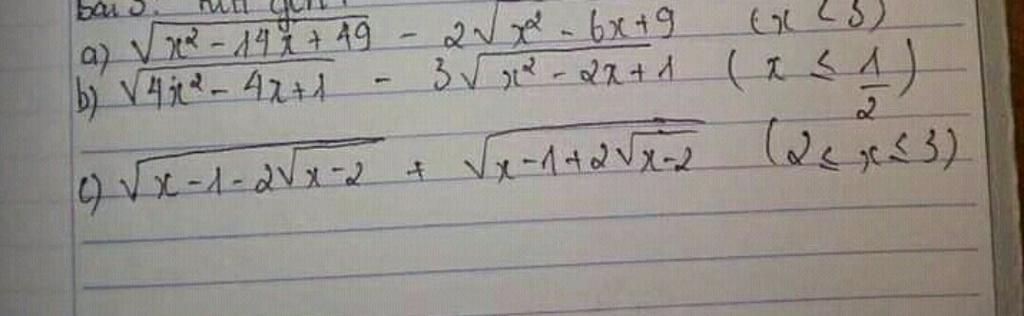 bài 3. Rút gọn:
a) √(x² - 14x + 49) - 2√(x² - 6x + 9) (x < 3)
b) √(4x² - 4x + 1) - 3√(x² - 2x + 1) (x ≤ 1/2)
c) √(x - 1 - 2√(x - 2)) + √(x - 1 + 2√(x - 2)) (2 ≤ x ≤ 3)